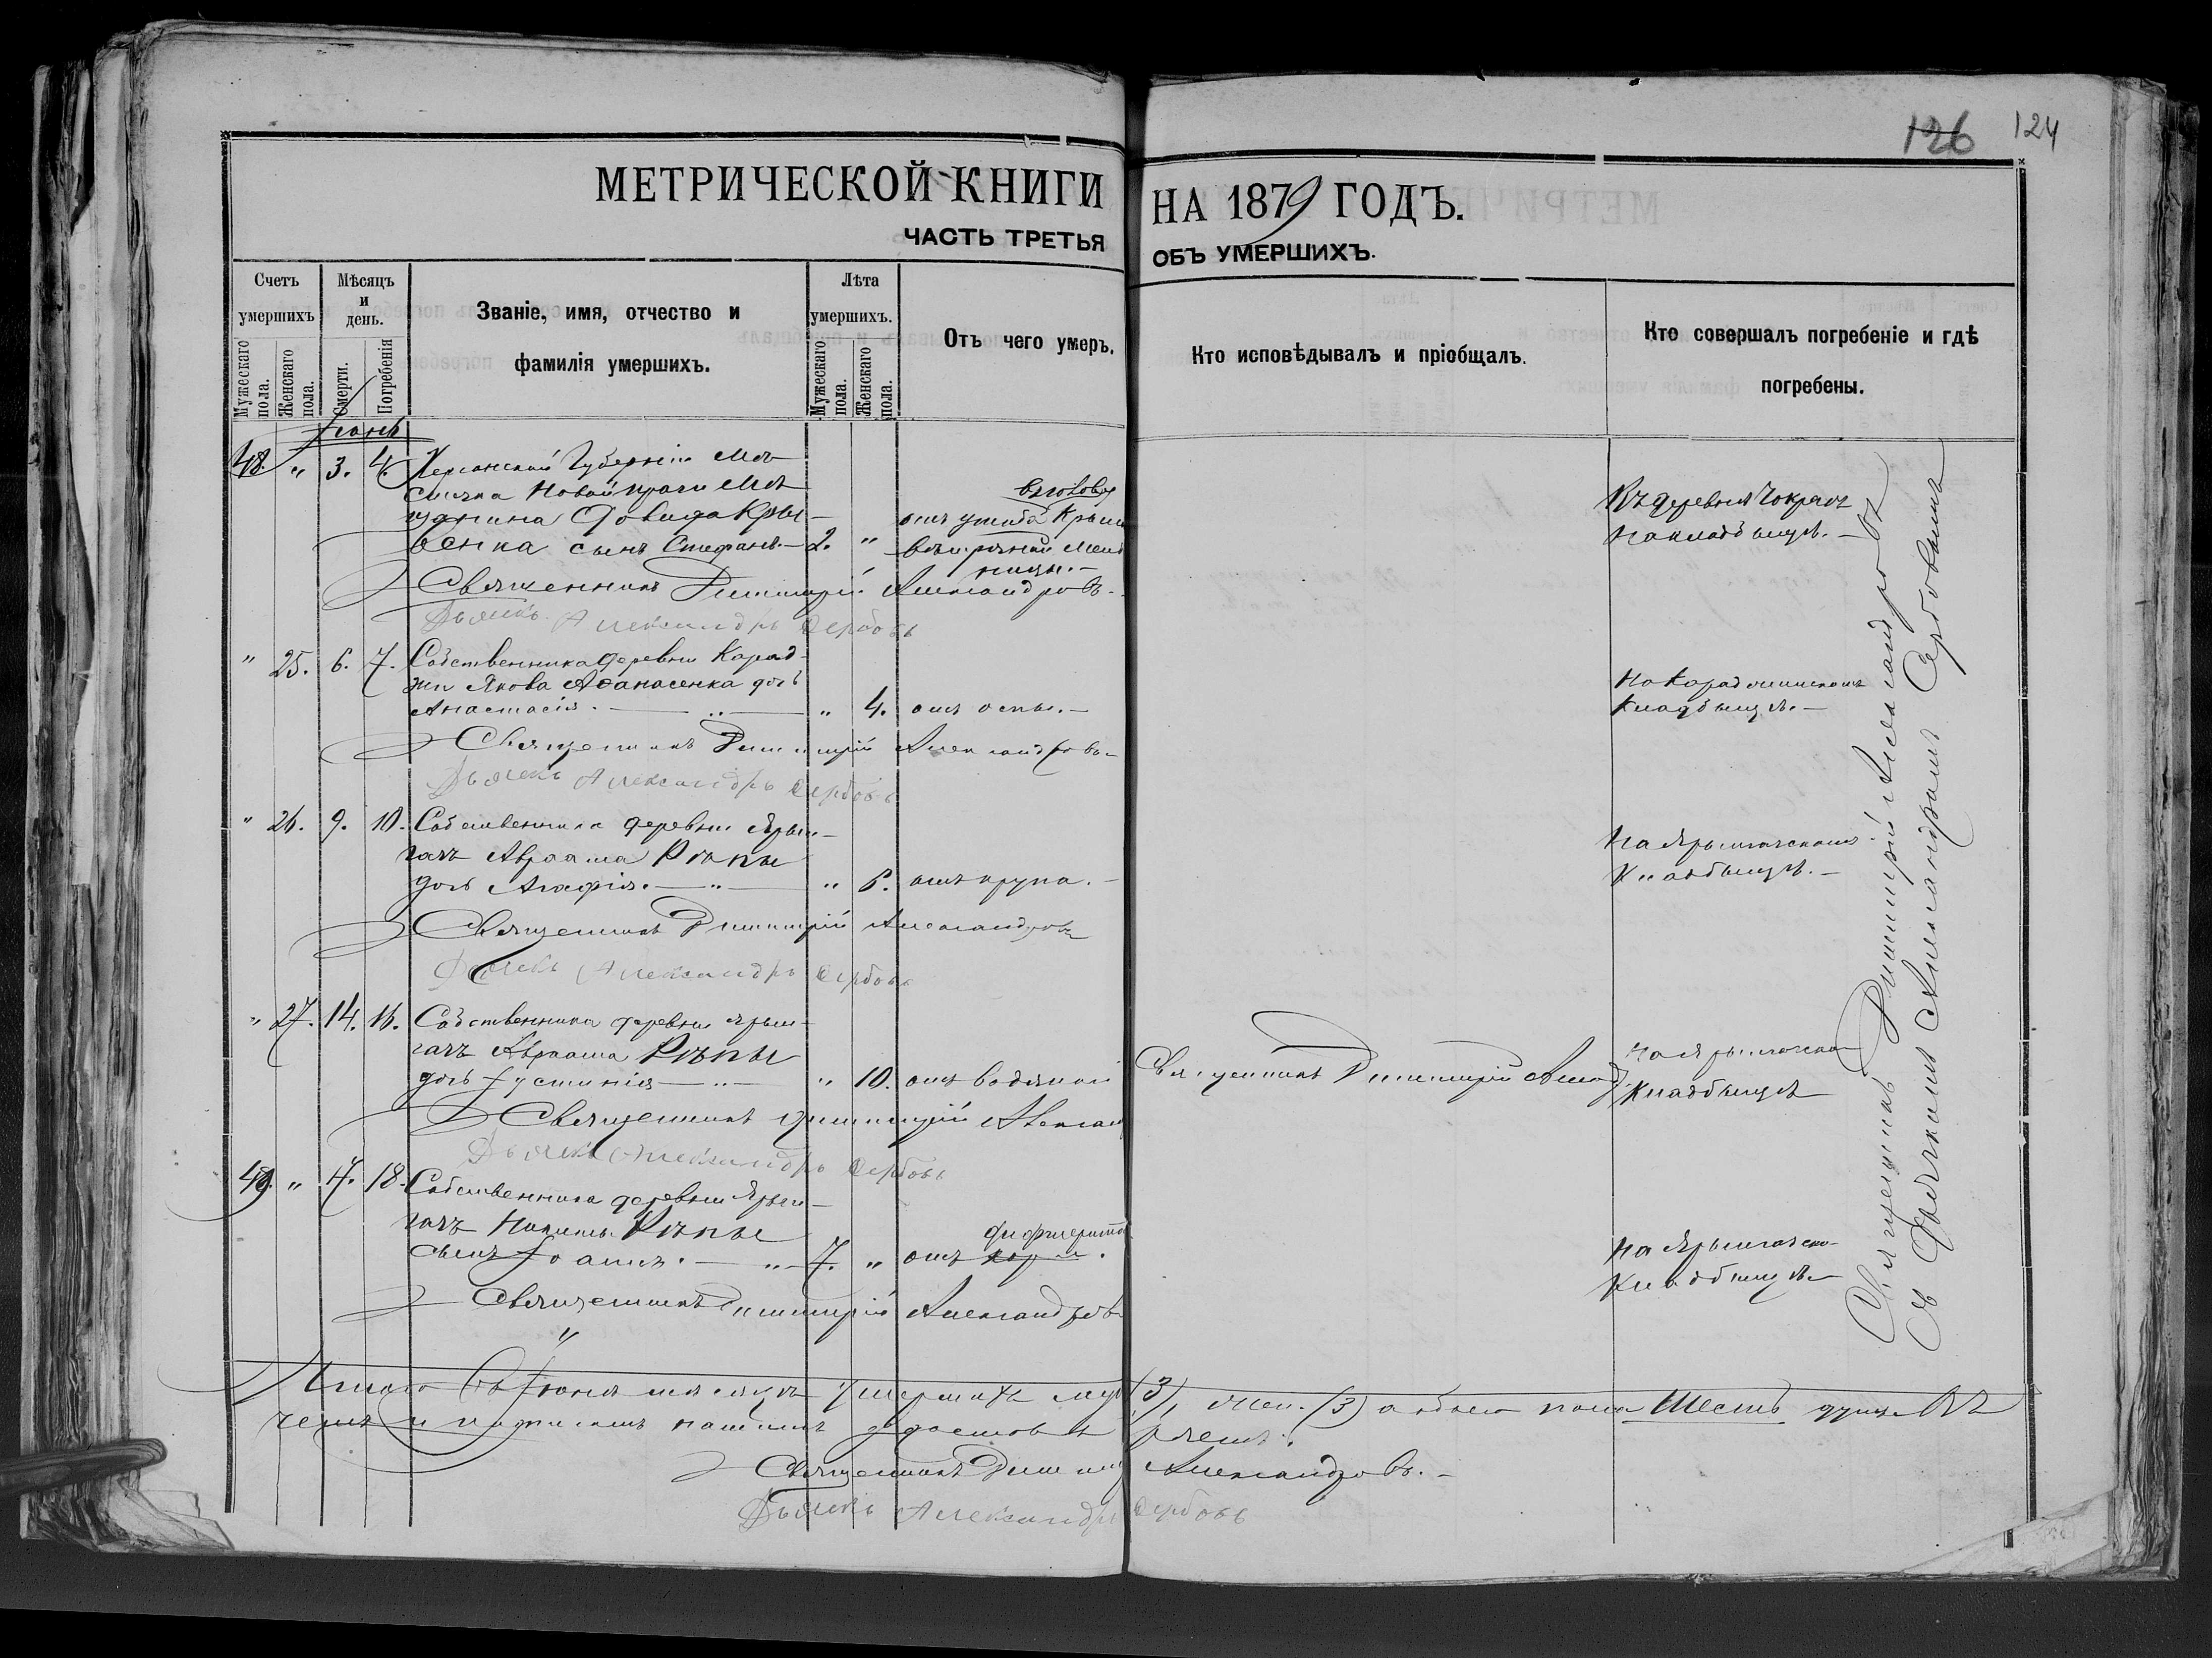 126 124
МЕТРИЧЕСКОЙ КНИГИ НА 1879 ГОДЪ.
ЧАСТЬ ТРЕТЬЯ ОБЪ УМЕРШИХЪ.
Счетъ умершихъ
Мужескаго пола.
Женскаго пола.
Мѣсяцъ и день.
Смерти.
Погребенія
Званіе, имя, отчество и фамилія умершихъ.
Лѣта умершихъ.
Мужескаго пола.
Женскаго пола.
Отъ чего умеръ.
Кто исповѣдывалъ и пріобщалъ.
Кто совершалъ погребеніе и гдѣ погребены.
Іюнь
48. " 3. 4. Херсонской Губерніи Мѣ-
стечка Новой праги Мѣ-
щанина Давида
сынъ Стефанъ. 2. "
отъ ушиба
Въ деревнѣ Чокракъ
на кладбищѣ.
Священникъ Димитрій Александровъ.
Дьячекъ Александръ Сербовъ
" 25. 6. 7. Собственника деревни Карад-
жи Якова Аѳанасенка дочь
Анастасія. " 4. отъ оспы.
На Караджинскомъ
Кладбищѣ.
Священникъ Димитрій Александровъ
Дьячекъ Александръ Сербовъ
" 26. 9. 10. Собственника деревни Ярыл-
гачъ Авраама Рѣпы
дочь Агафія. " 6. отъ крупа.
На Ярылгачскомъ
Кладбищѣ.
Священникъ Димитрій Александровъ
Дьячекъ Александръ Сербовъ
" 27. 14. 16. Собственника деревни Ярыл-
гачъ Авраама Рѣпы
дочь Іустинія " 10. отъ водяной
Священникъ Димитрій Александ.
На Ярылгачско
Кладбищѣ
Священникъ Димитрій Алексан
Дьячекъ Александръ Сербовъ
49. " 17. 18. Собственника деревни Ярыл-
гачъ Никиты Рѣпы
сынъ Іоаннъ. 7. " отъ дифтерита
На Ярылгачско
Кладбищѣ
Священникъ Димитрій Александровъ
Священникъ Димитрій Александровъ
съ Дьячкомъ Александромъ Сербовымъ
Итого въ Іюнѣ мѣсяцѣ умершихъ муж (3), жен. (3) а обоего пола Шесть душъ. Въ
чемъ и подписомъ нашимъ удостовѣряемъ.
Священникъ Димитрій Александровъ.
Дьячекъ Александръ Сербовъ